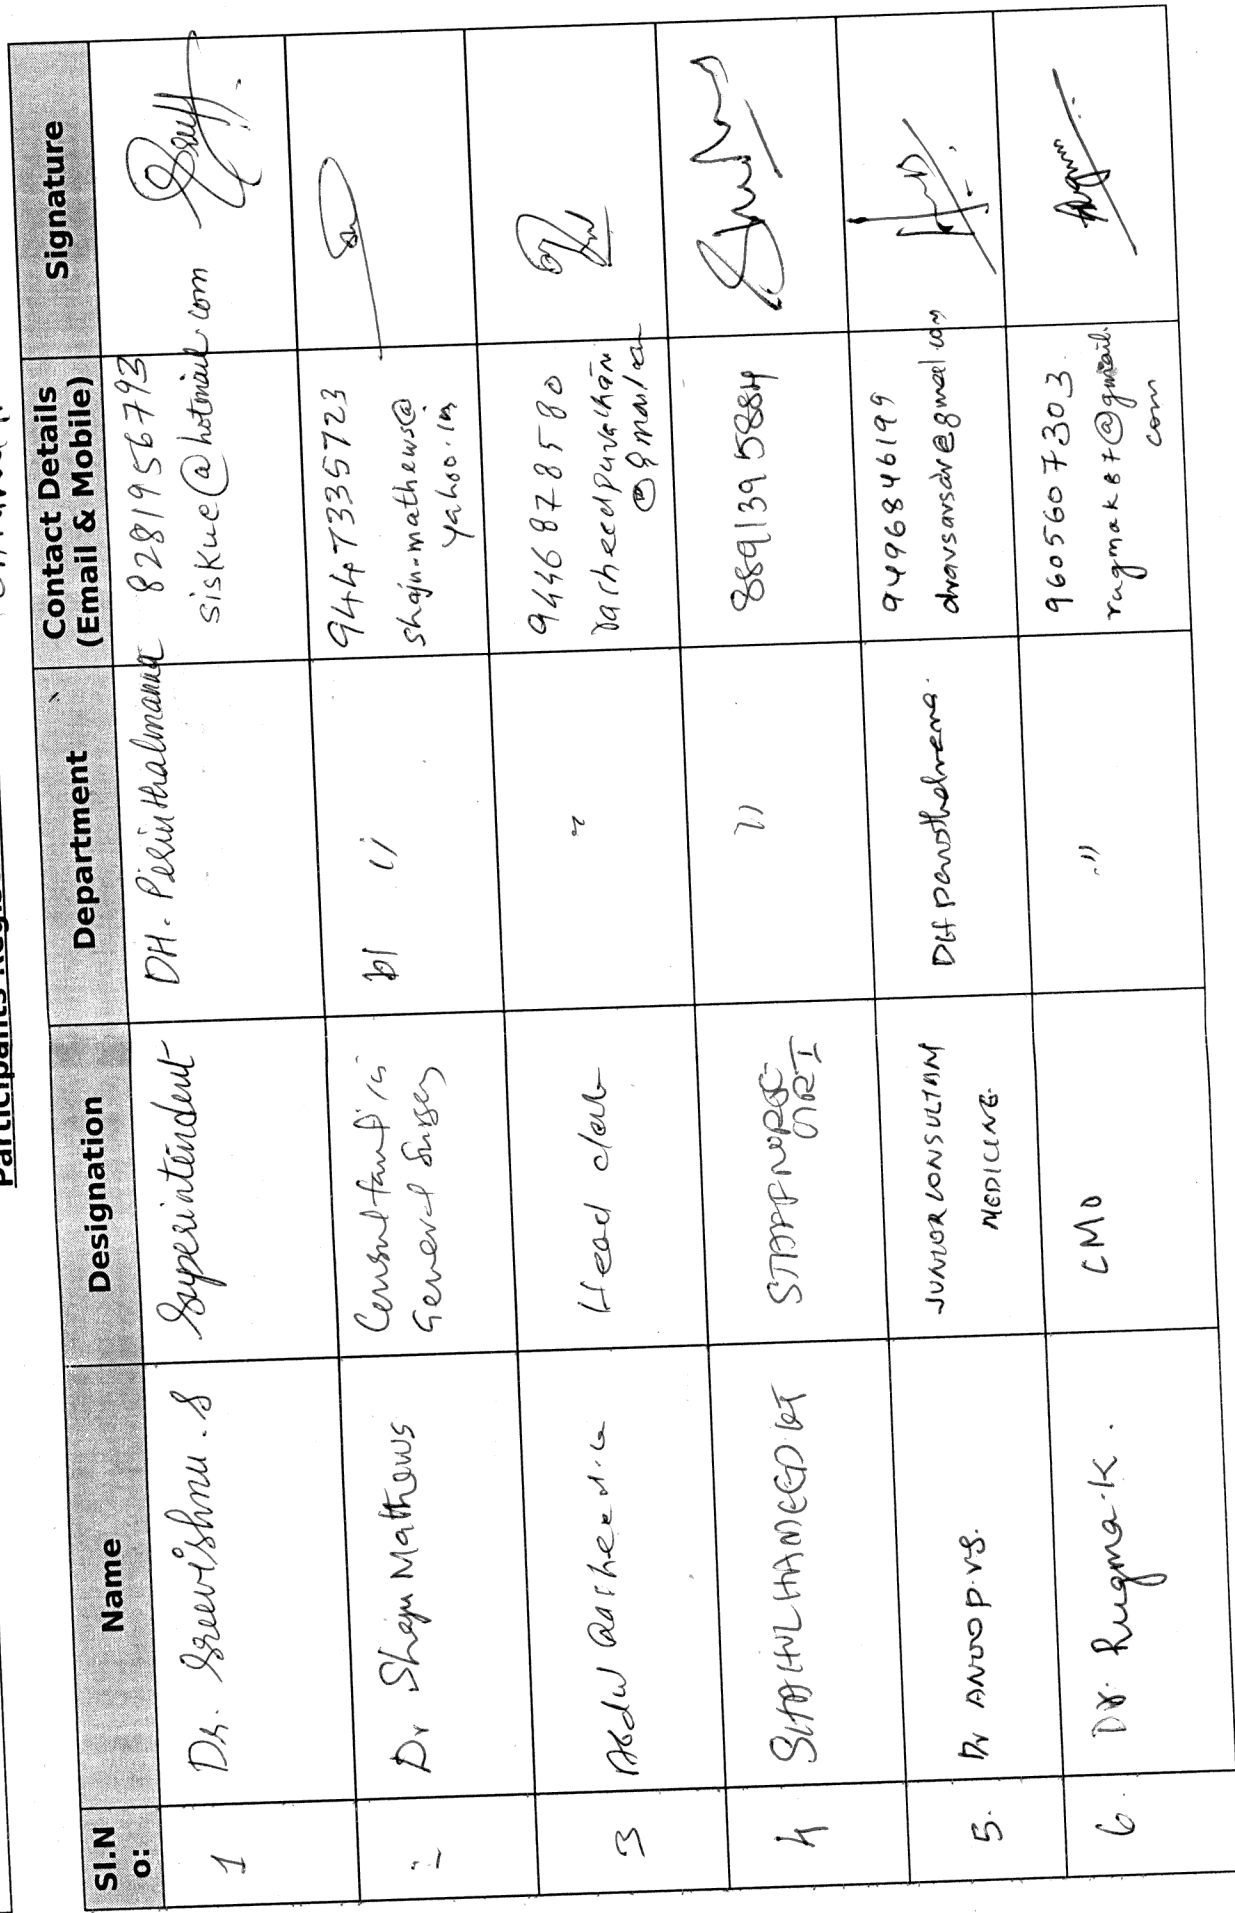 Participants Regis
Sl.No:
Name
Designation
Department
Contact Details
(Email & Mobile)
Signature
1
Dr. Sreevishnu.S
Superintendent
DH. Perinthalmanna
8281956793
siskuc@hotmail.com
Dr Shaju Matthews
Consultant in
General Surgery
9447335723
shaju-mathews@
yahoo.in
3
Abdul Rasheed
Head clerk
"
9446878580
@gmail.com
4
SHAHULHAMEED KT
STAFF NURSE
GR I
"
8891395884
5.
Dr ANOOP.VS.
JUNIOR CONSULTANT
MEDICINE.
DH Perinthalmanna.
9496846199
dravsavsdr@gmail.com
6.
Dr. Rugma.K.
CMO
"
9605607303
rugmak87@gmail.
com